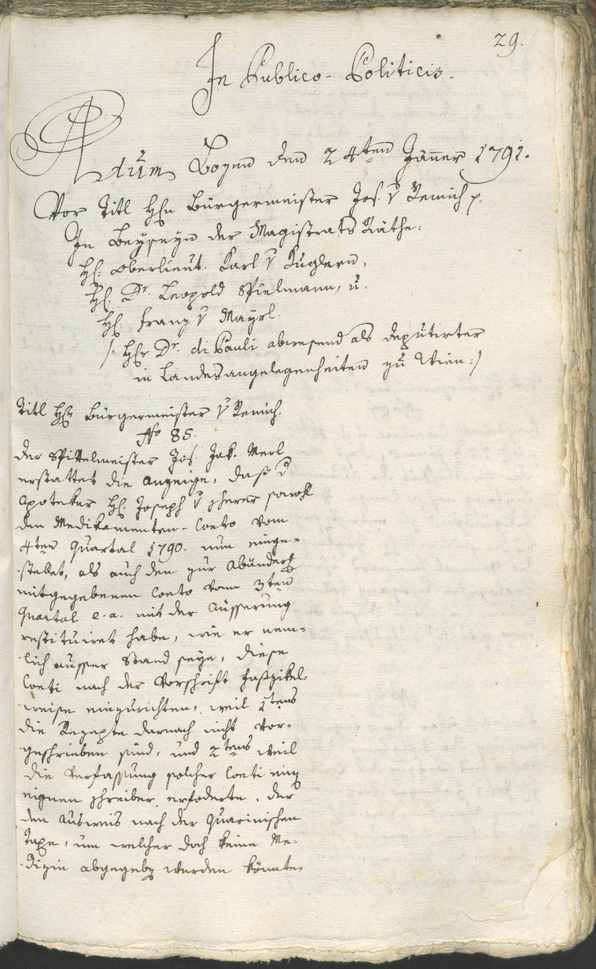 29.
In Publico-Politicis.
Actum Bozen den 24ten Jänner 1791.
Vor Titl Hhn Bürgermeister Jos. v Remich p.
In Beyseyn der Magistrats Räthe:
Hh: oberlieut. Karl v Kuglern,
Hh: Dr. Leopold Spielmann, u.
Hh: Franz v Mayrl
/: Hhr Dr. di Pauli abwesend als deputirter
in Landesangelegenheiten zu Wien :/
Titl Hhr Bürgermeister v Remich.
No 85.
Der Spittelmeister Jos. Jak. Merl
erstattet die Anzeige, dass d
Apoteker Hh: Joseph v Scherer sowohl
den Medikamenten-Conto vom
4ten Quartal 1790. nun einge-
stellet, als auch den zur Abänderg
mitgegebenen Conto vom 3ten
Quartal e. a. mit der Äusserung
restituiret habe, wie er nem-
lich ausser Stand seye, diese
Conti nach der Vorschrift
weise einzurichten, weil 1tens
die Rezepte darnach nicht vor-
geschrieben sind, und 2tens weil
die Verfassung solcher Conti eing
eignen Schreiber erfoderte, der
den Ausweis nach der Quarinischen
Taxe, um welcher doch keine Me-
dizin abgegebn werden könnte,